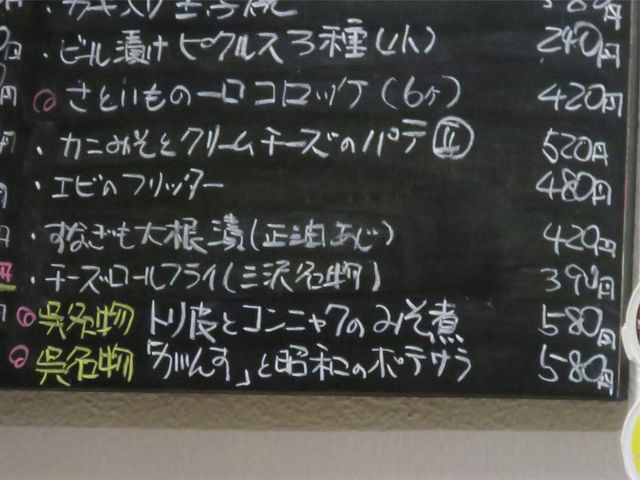 カキ入り玉子焼 580円
・ビール漬けピクルス3種(小) 240円
さといもの一口コロッケ(6ヶ) 420円
・カニみそとクリームチーズのパテ 520円
・エビのフリッター 480円
・すなぎも大根漬(正油あじ) 420円
・チーズロールフライ(三沢名物) 390円
呉名物 トリ皮とコンニャクのみそ煮 580円
呉名物 「がんす」と昭和のポテサラ 580円